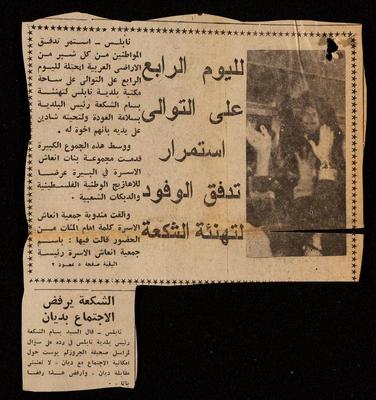 لليوم الرابع
على التوالي
استمرار
تدفق الوفود
لتهنئة الشكعة
نابلس ــ استمر تدفق
المواطنين من كل شبر من
الاراضي العربية المحتلة لليوم
الرابع على التوالي على ساحة
مكتبة بلدية نابلس لتهنئة
بسام الشكعة رئيس البلدية
بسلامة العودة ولتحيته شادين
على يديه بأنهم اخوة له .
ووسط هذه الجموع الكبيرة
قدمت مجموعة بنات انعاش
الاسرة في البيرة عرضا
للاهازيج الوطنية الفلسطينية
والدبكات الشعبية .
والقت مندوبة جمعية انعاش
الاسرة كلمة امام المئات من
الحضور قالت فيها : باسم
جمعية انعاش الاسرة رئيسة
البقية صفحة ٥ عمود ٢
الشكعة يرفض
الاجتماع بديان
نابلس ــ قال السيد بسام الشكعة
رئيس بلدية نابلس في رده على سؤال
لمراسل صحيفة الجروزلم بوست حول
امكانية الاجتماع مع ديان ، لا تعنيني
مقابلة ديان ، وارفض هذا رفضا
باتا .